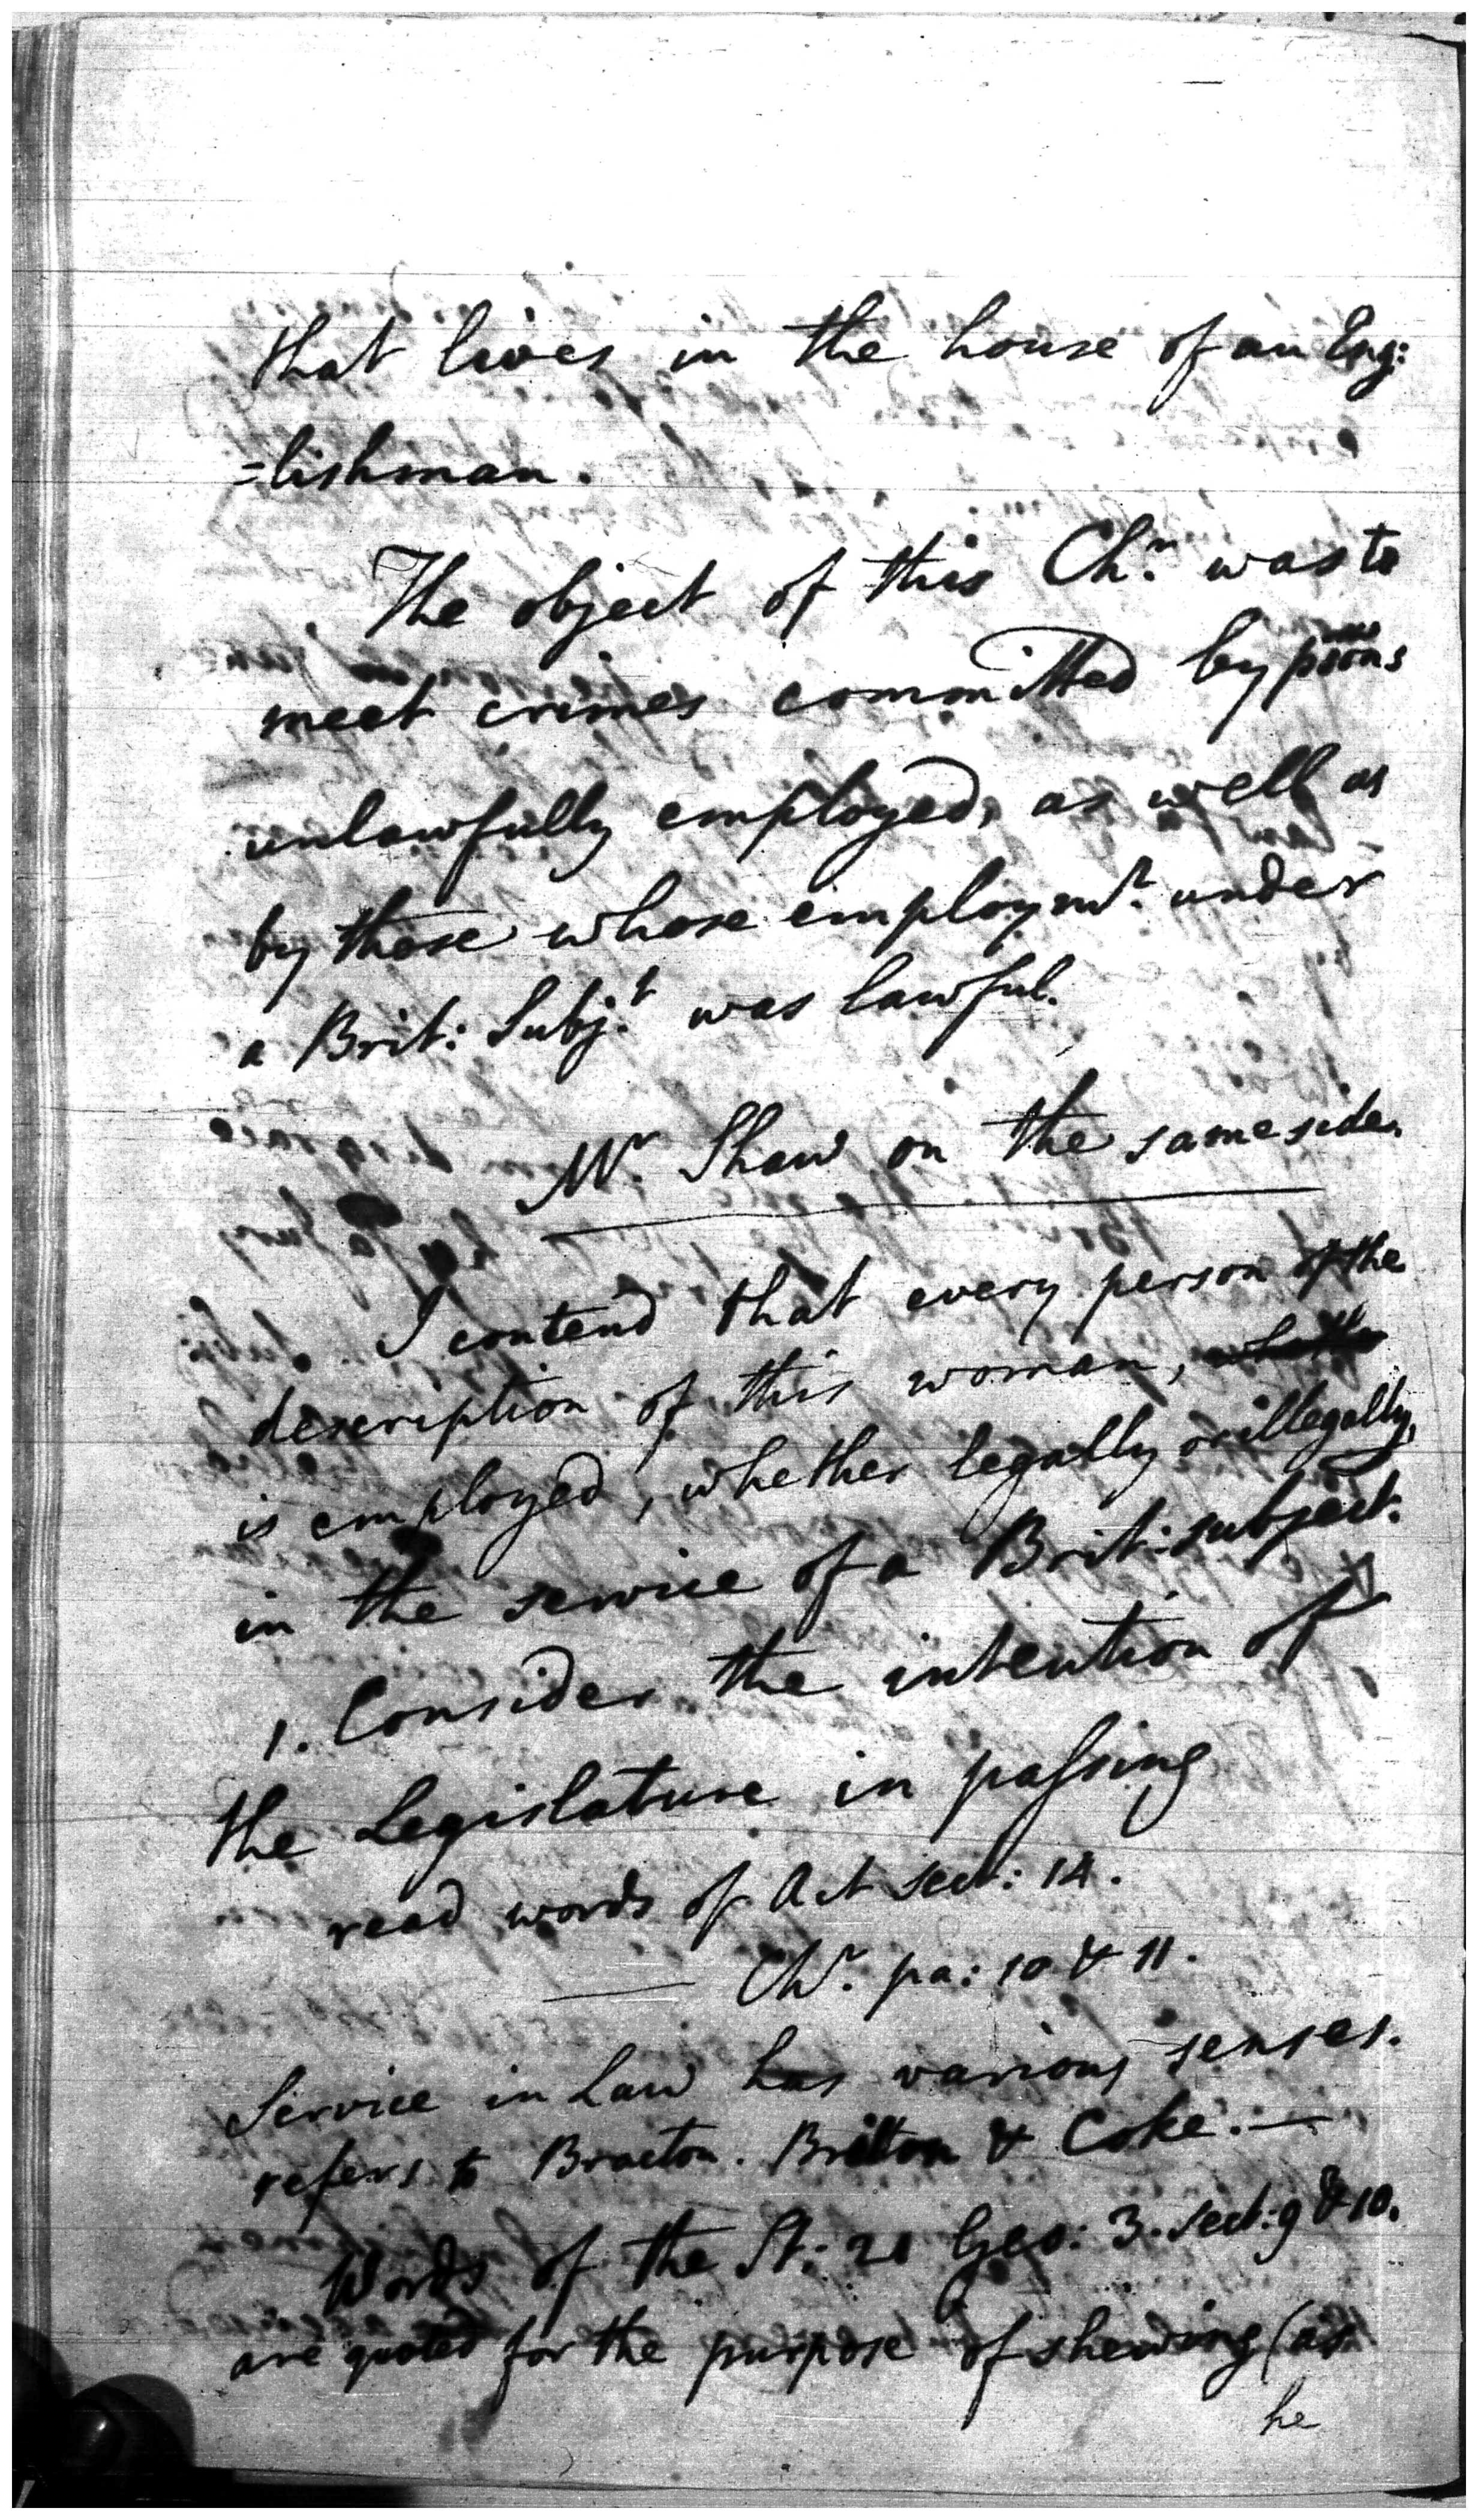 that lives in the house of an Eng:
=lishman.
The object of this Chr. was to
meet crimes committed by psons
unlawfully employed, as well as
by those whose employmt. under
a Brit: Subjt. was lawful.
Mr. Shaw on the same side.
I contend that every person of the
description of this woman,
is employed, whether legally or illegally,
in the service of a Brit: subject.
1. Consider the intention of
the Legislature in passing
read words of Act sect: 14.
— Chr. pa: 10 & 11.
Service in Law has various senses.
refers to Bracton. Britton & Coke. —
Words of the St: 21 Geo: 3. sect: 9 & 10.
are quoted for the purpose of shewing (as
he